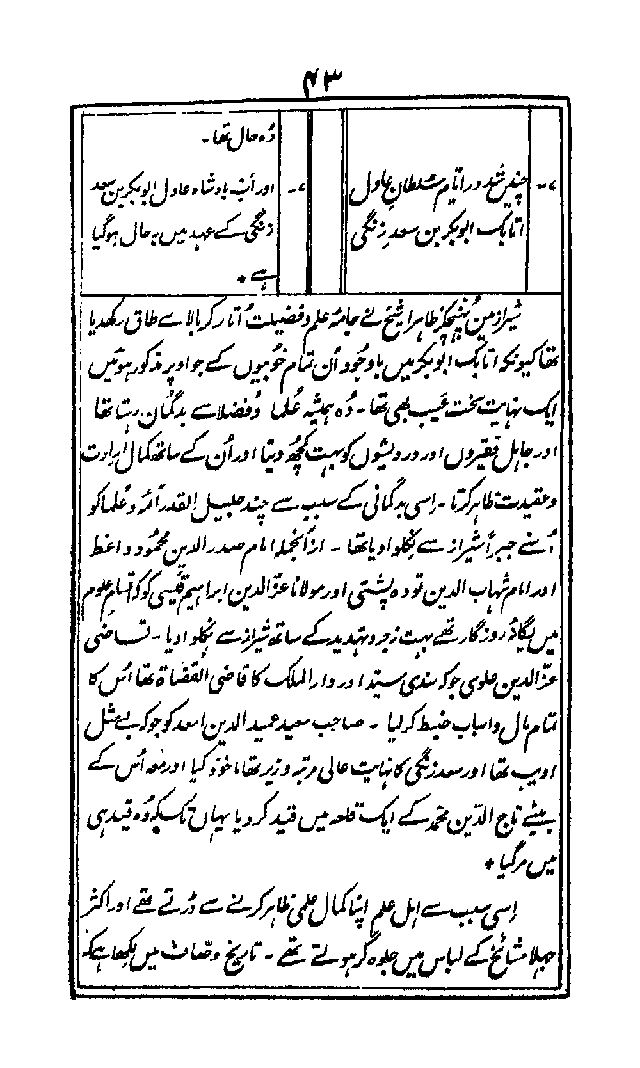 ۴۳
۷- چنیں شد در ایّام سلطان عادل
اتابک ابوبکر بن سعد زنگی
وُہ حال تھا۔
۷- اور اب بادشاہ عادل ابوبکر بن سعد
زنگی کے عہد میں یہ حال ہوگیا
ہے *
شیراز میں پُہنچکر ظاہرا شیخ نے جامۂ علم و فضیلت اُتار کر بالاے طاق رکھدیا
تھا کیونکہ اتابک ابوبکر میں باوجُود اُن تمام خُوبیوں کے جو اوپر مذکور ہوئیں
ایک نہایت سخت عیب بھی تھا۔ وُہ ہمیشہ عُلما و فُضلا سے بدگمان رہتا تھا
اور جاہل فقیروں اور درویشوں کو بہت کچھ دیتا اور اُن کے ساتھ کمال ارادت
و عقیدت ظاہر کرتا۔ اِسی بدگمانی کے سبب سے چند جلیل القدر آئمہ و عُلما کو
اُسنے جبراً شیراز سے نِکلوا دیا تھا۔ ازانجملہ امام صدر الدین محمُود واعظ
اور امام شہاب الدین تودہ پشتی اور مولانا عزّ الدین ابراہیم قیسی کو کہ تمام علوم
میں یگانۂ روزگار تھے بہت زجر و تہدید کے ساتھ شیراز سے نِکلوا دیا۔ قاضی
عزّ الدین علوی جو کہ سندی سیّد اور دار الملک کا قاضی القضاۃ تھا اُس کا
تمام مال و اسباب ضبط کرلیا۔ صاحب سعید عمید الدین اسعد کو جو کہ بے مثل
ادیب تھا اور سعد زنگی کا نہایت عالی مرتبہ وزیر تھا ماخوذ کیا اور معہ اُس کے
بیٹے تاج الدّین محمد کے ایک قلعہ میں قید کردیا یہاں تک کہ وُہ قید ہی
میں مرگیا *
اِسی سبب سے اہلِ علم اپنا کمال علمی ظاہر کرنے سے ڈرتے تھے اور اکثر
جہلا مشائخ کے لباس میں جلوہ گر ہوتے تھے۔ تاریخ وصّاف میں لکھا ہے کہ